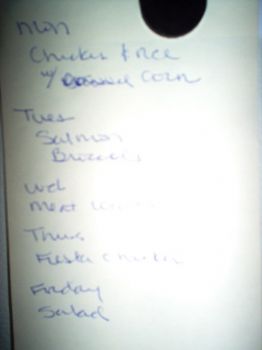 Mon
Chicken & rice
w/ corn
Tues
Salmon
Broccoli
Wed
Meat
Thurs
Fiesta Chicken
Friday
Salad